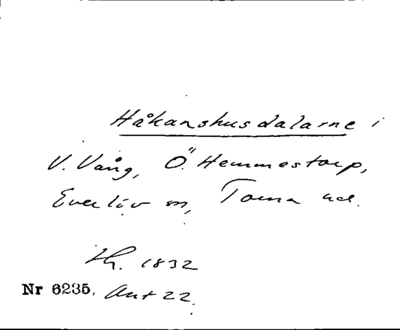 Håkanshusdalarne i
V. Vång, Ö. Hemmestorp,
Everlöv sn, Torna hd.
1832
Nr 6235. Ant 22.